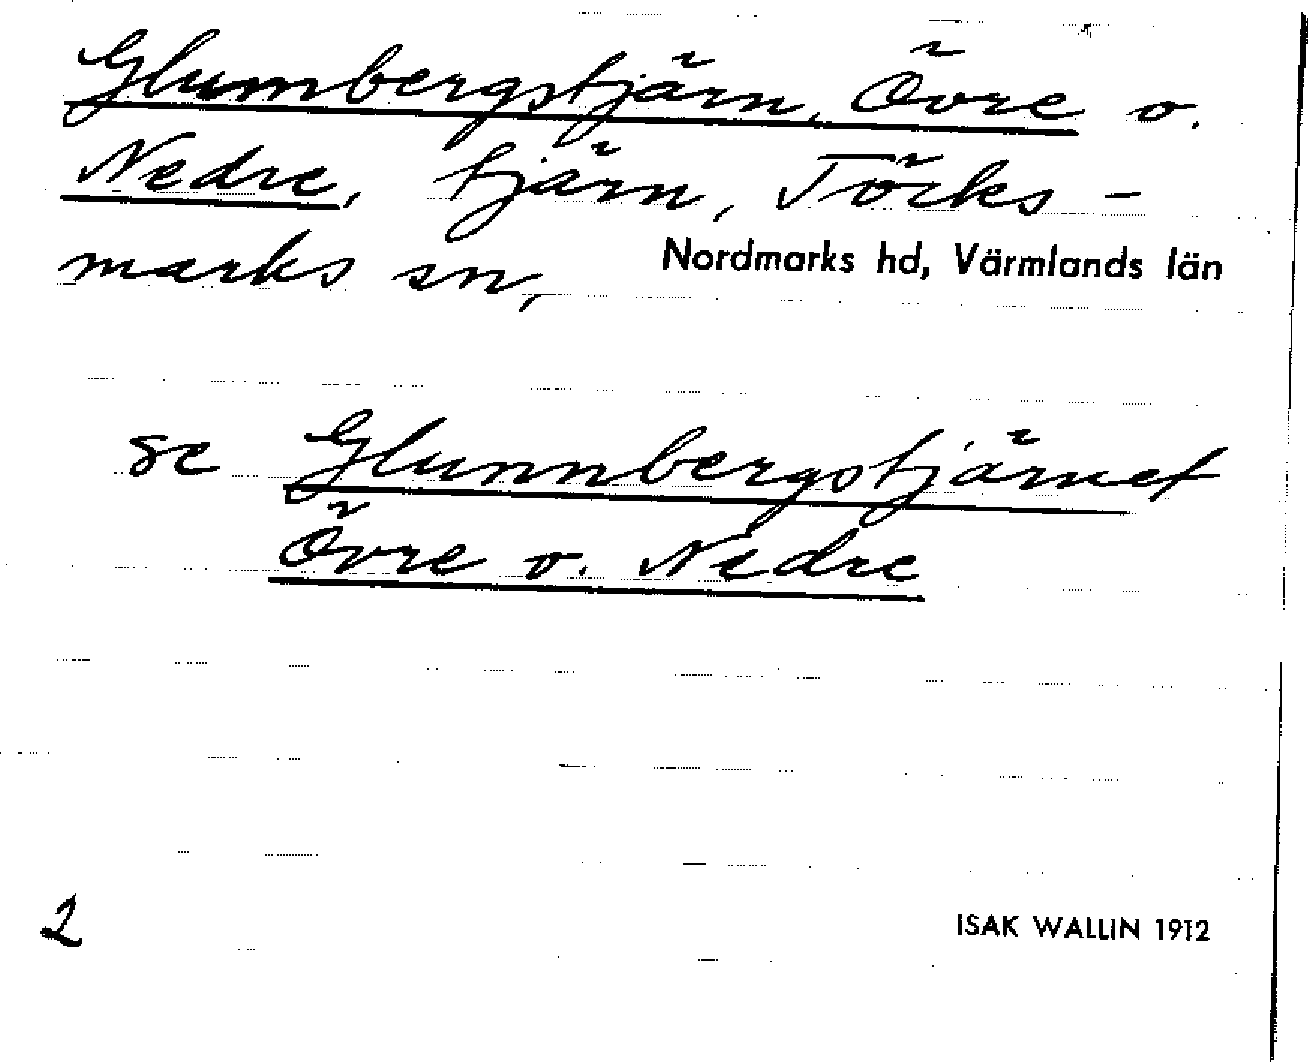 Glumbergstjärn, Övre o.
Nedre, tjärn, Töcks-
marks sn, Nordmarks hd, Värmlands län
se Glunnbergstjärnet
Övre o. Nedre
2
ISAK WALLIN 1912